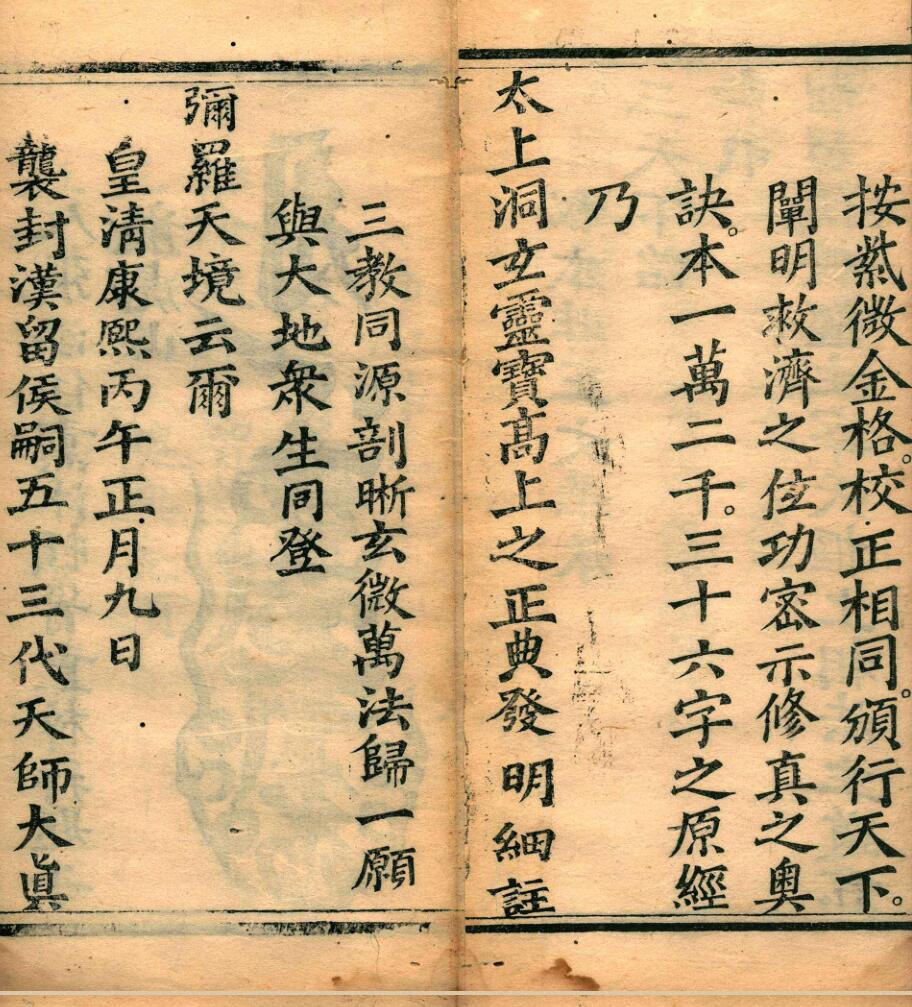 按紫微金格。校正相同。頒行天下。
闡明救濟之位功宻示修真之奧
訣。本一萬二千。三十六字之原經
乃
太上洞玄靈寶髙上之正典發明細註
三教同源剖晰玄微萬法歸一願
與大地衆生同登
彌羅天境云爾
皇清康熙丙午正月九日
襲封漢留侯嗣五十三代天師大眞